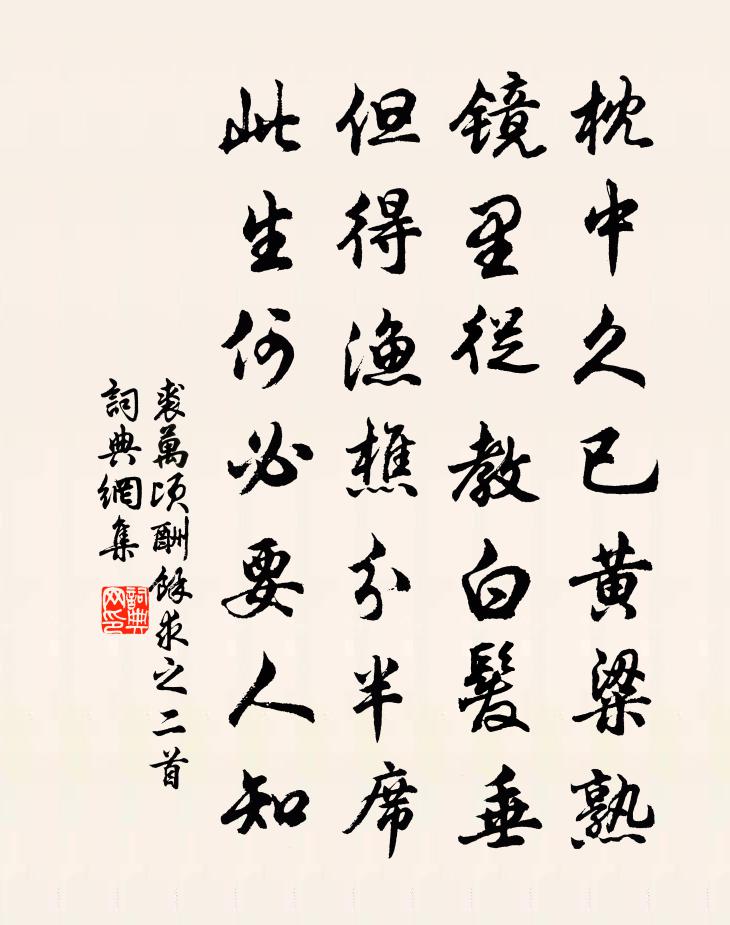 枕中久已黄粱熟
镜里從教白髮垂
但得漁樵分半席
此生何必要人知
裘萬頃酬餘求之二首
詞典網集
詞典网印